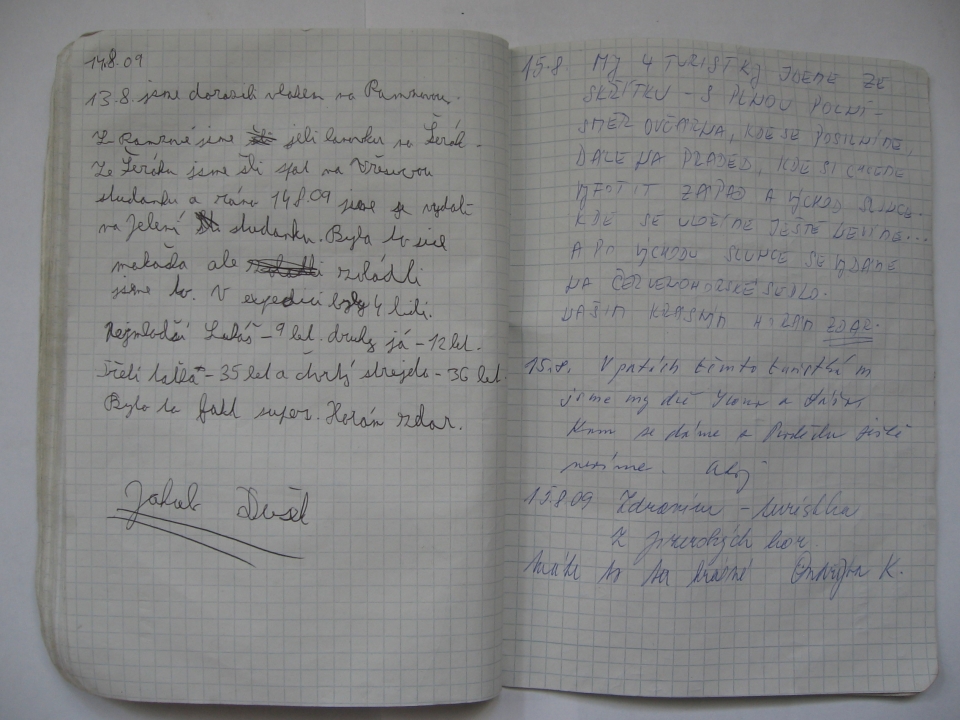 14.8.09
13.8. jsme dorazili vlakem na Ramzovou.
Z Ramzové jsme jeli lanovkou na Šerák.
Ze Šeráku jsme šli spat na Vřesovou
studánku a ráno 14.8.09 jsme se vydali
na Jelení studánku. Byla to sice
makačka ale zvládli
jsme to. V expedici byly 4 lidi.
Nejmladší Lukáš - 9 let. druhý já - 12 let.
Třetí taťka - 35 let a čtvrtý strejda - 36 let.
Bylo to fakt super. Horám zdar.
Jakub
15.8. MY 4 TURISTKY JDEME ZE
SKŘÍTKU - S PLNOU POLNÍ -
SMĚR OVČÁRNA, KDE SE POSILNÍME,
DÁLE NA PRADĚD, KDE SI CHCEME
VYFOTIT ZÁPAD A VÝCHOD SLUNCE.
KDE SE ULOŽÍME JEŠTĚ NEVÍME...
A PO VÝCHODU SLUNCE SE VYDÁME
NA ČERVENOHORSKÉ SEDLO.
NAŠIM KRÁSNÝM HORÁM ZDAR.
15.8. V patách těmto turistkám
jsme my dvě a
Kam se dáme z Pradědu ještě
nevíme. Ahoj
15.8.09 Zdravím - turistka
z hor.
to tu krásné K.